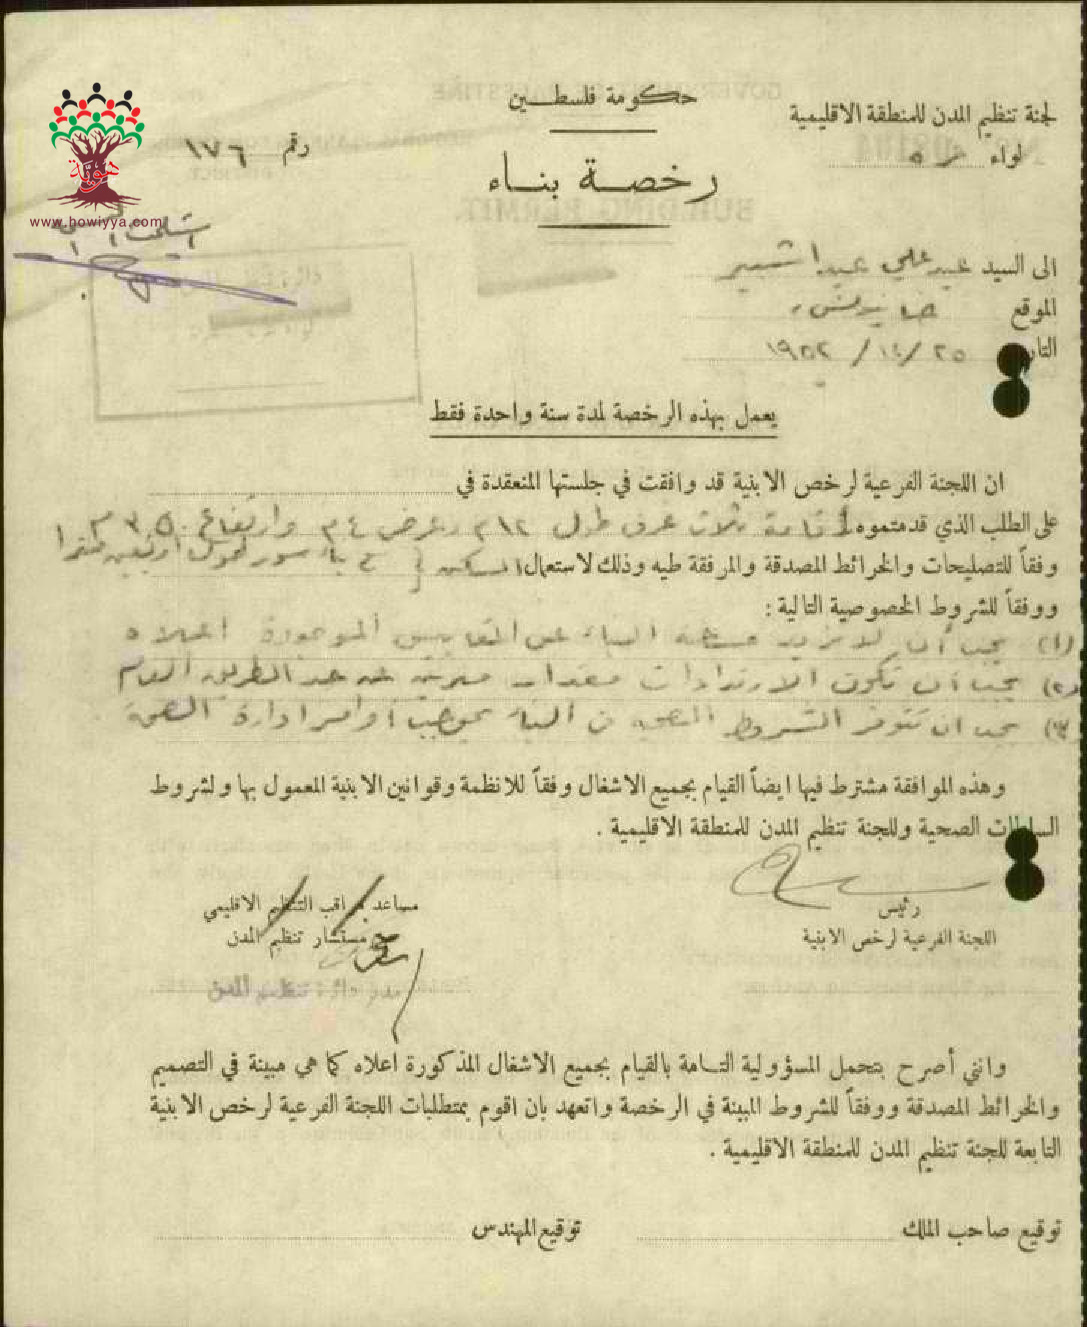 حكومة فلسطين
لجنة تنظيم المدن للمنطقة الاقليمية
لواء
رقم ١٧٦
رخصة بناء
هوية
www.howiyya.com
استلمت
الى السيد عبد علي عبد
الموقع خانيونس
التار ٢٥ / ١٢ / ١٩٥٢
يعمل بهذه الرخصة لمدة سنة واحدة فقط
ان اللجنة الفرعية لرخص الابنية قد وافقت في جلستها المنعقدة في
على الطلب الذي قدمتموه لاقامة ثلاث غرف طول ١٢م وعرض ٤م وارتفاع ٣٫٥٠م
وفقاً للتصليحات والخرائط المصدقة والمرفقة طيه وذلك لاستعمال السكن بناء سور لحوش
ووفقاً للشروط الخصوصية التالية :
(١) يجب أن لا تزيد مساحة البناء عن المقاييس الموجودة اعلاه
(٢) يجب أن تكون الارتدادات بمقدار مترين عن حد الطريق العام
(٣) يجب ان تتوفر الشروط الصحيه في البناء بموجب أوامر ادارة الصحة
وهذه الموافقة مشترط فيها ايضاً القيام بجميع الاشغال وفقاً للانظمة وقوانين الابنية المعمول بها ولشروط
السلطات الصحية وللجنة تنظيم المدن للمنطقة الاقليمية .
رئيس
اللجنة الفرعية لرخص الابنية
مساعد مراقب التنظيم الاقليمي
مستشار تنظيم المدن
مدير دائرة تنظيم المدن
وانني أصرح بتحمل المسؤولية التامة بالقيام بجميع الاشغال المذكورة اعلاه كما هي مبينة في التصميم
والخرائط المصدقة ووفقاً للشروط المبينة في الرخصة واتعهد بان اقوم بمتطلبات اللجنة الفرعية لرخص الابنية
التابعة للجنة تنظيم المدن للمنطقة الاقليمية .
توقيع صاحب الملك
توقيع المهندس